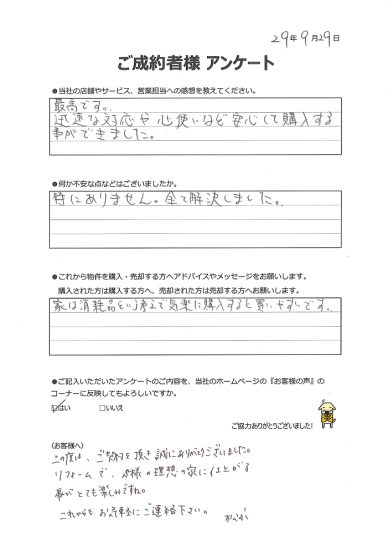 29年9月29日
ご成約者様 アンケート
●当社の店舗やサービス、営業担当への感想を教えてください。
最高です。
迅速な対応や心使いなど安心して購入する
事ができました。
●何か不安な点などはございましたか。
特にありません。全て解決しました。
●これから物件を購入・売却する方へアドバイスやメッセージをお願いします。
購入された方は購入する方へ、売却された方は売却する方へお願いします。
家は消耗品という考えで気楽に購入すると買いやすいです。
●ご記入いただいたアンケートのご内容を、当社のホームページの『お客様の声』の
コーナーに反映してもよろしいですか。
☑はい □いいえ
ご協力ありがとうございました!
(お客様へ)
この度は、ご契約を頂き誠にありがとうございました。
リフォームで、様の理想の家に仕上がる
事がとても楽しみですね。
これからもお気軽にご連絡下さい。